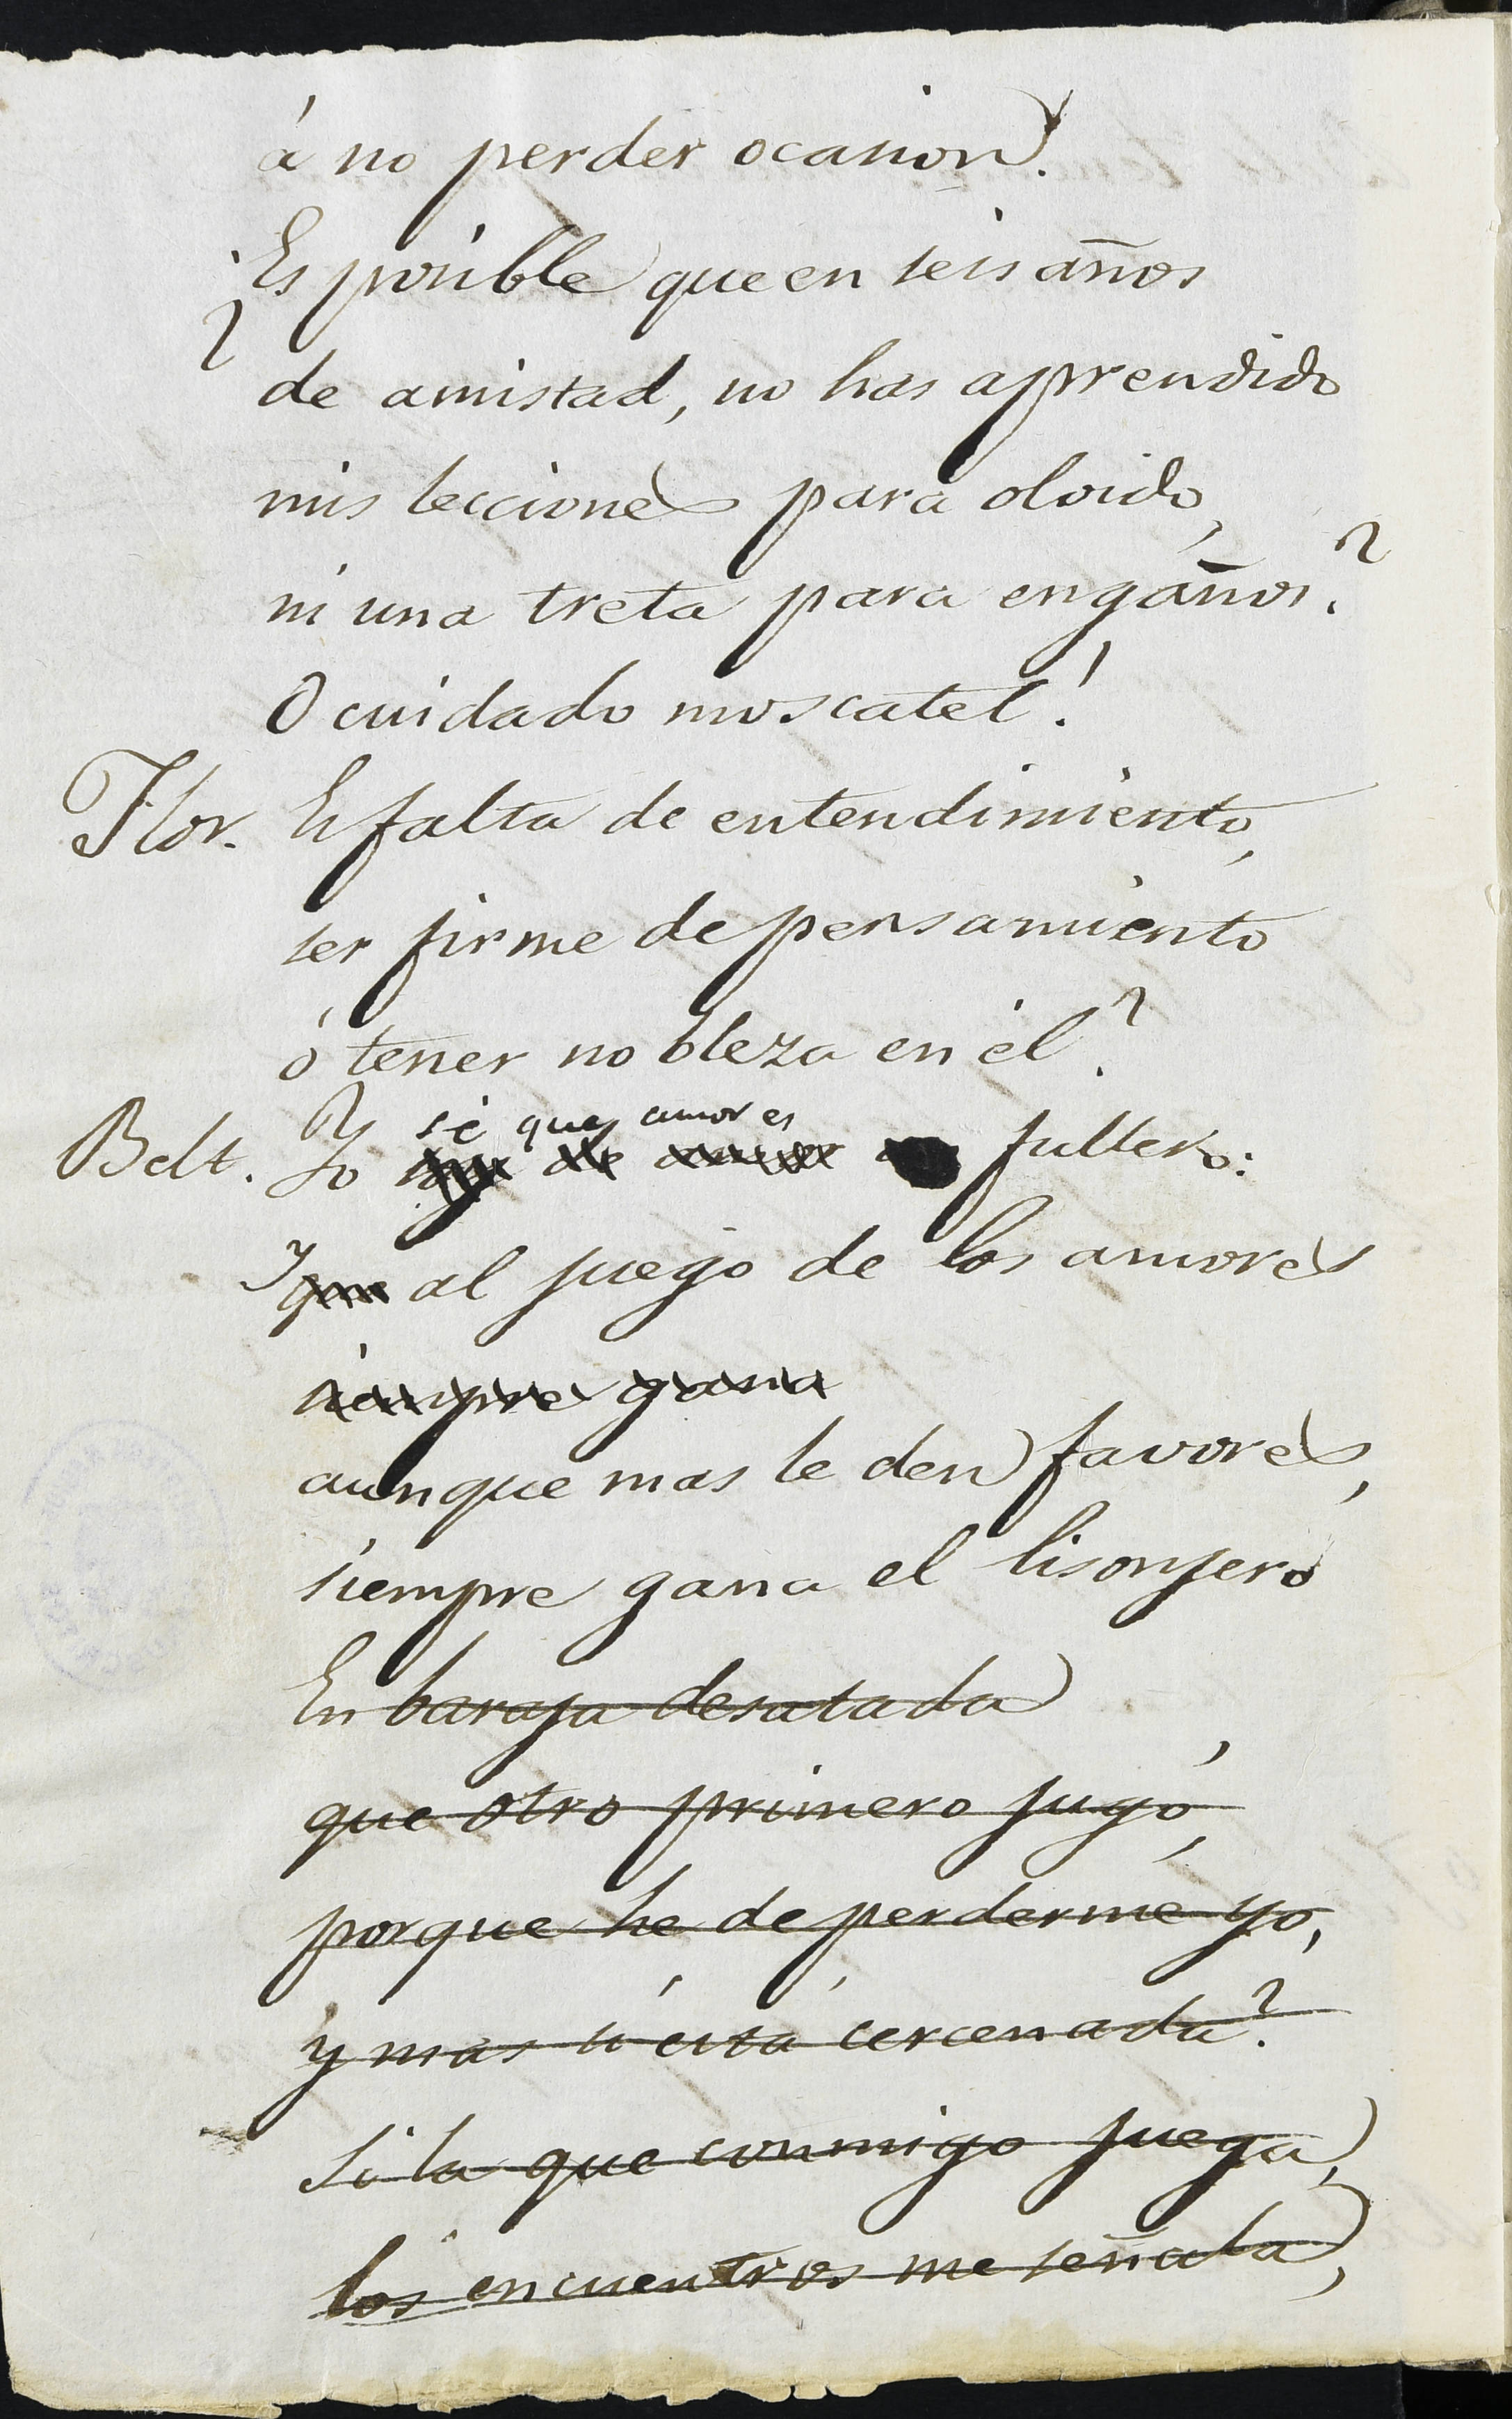 á no perder ocasion.
¿Es posible que en seis años
de amistad, no has aprendido
mis lecciones para olvido,
ni una treta para engaños?
O cuidado moscatel!
Flor. Es falta de entendimiento,
ser firme de pensamiento
ó tener nobleza en él?
sé que amores
Belt. Yo soy de amor fullero:
y
que al juego de los amores
siempre gana
aunque mas le den favores,
siempre gana el lisonjero
En baraja desatada,
que otro primero jugó,
porque he de perderme yo,
y mas si está cercenada?
Si la que conmigo juega,
los encuentros me señala,